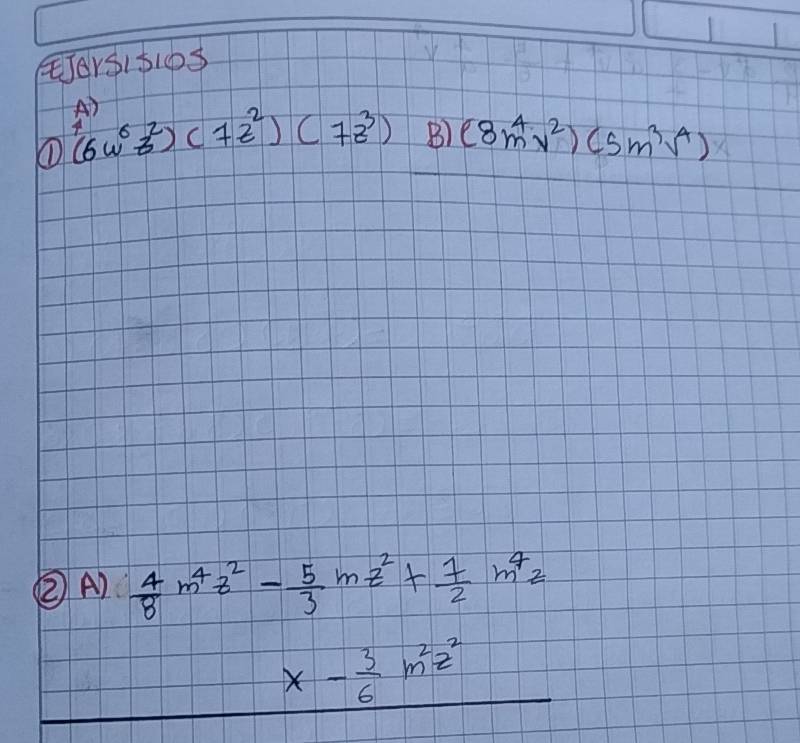 EJERSISIOS
A)
① (6w⁶z²) (7z²) (7z³) B) (8m⁴v²) (5m³v⁴)
② A) 4/8 m⁴z² - 5/3 mz² + 7/2 m⁴z
x - 3/6 m²z²